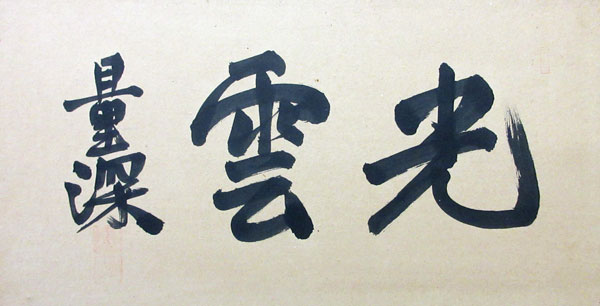 光雲
量深